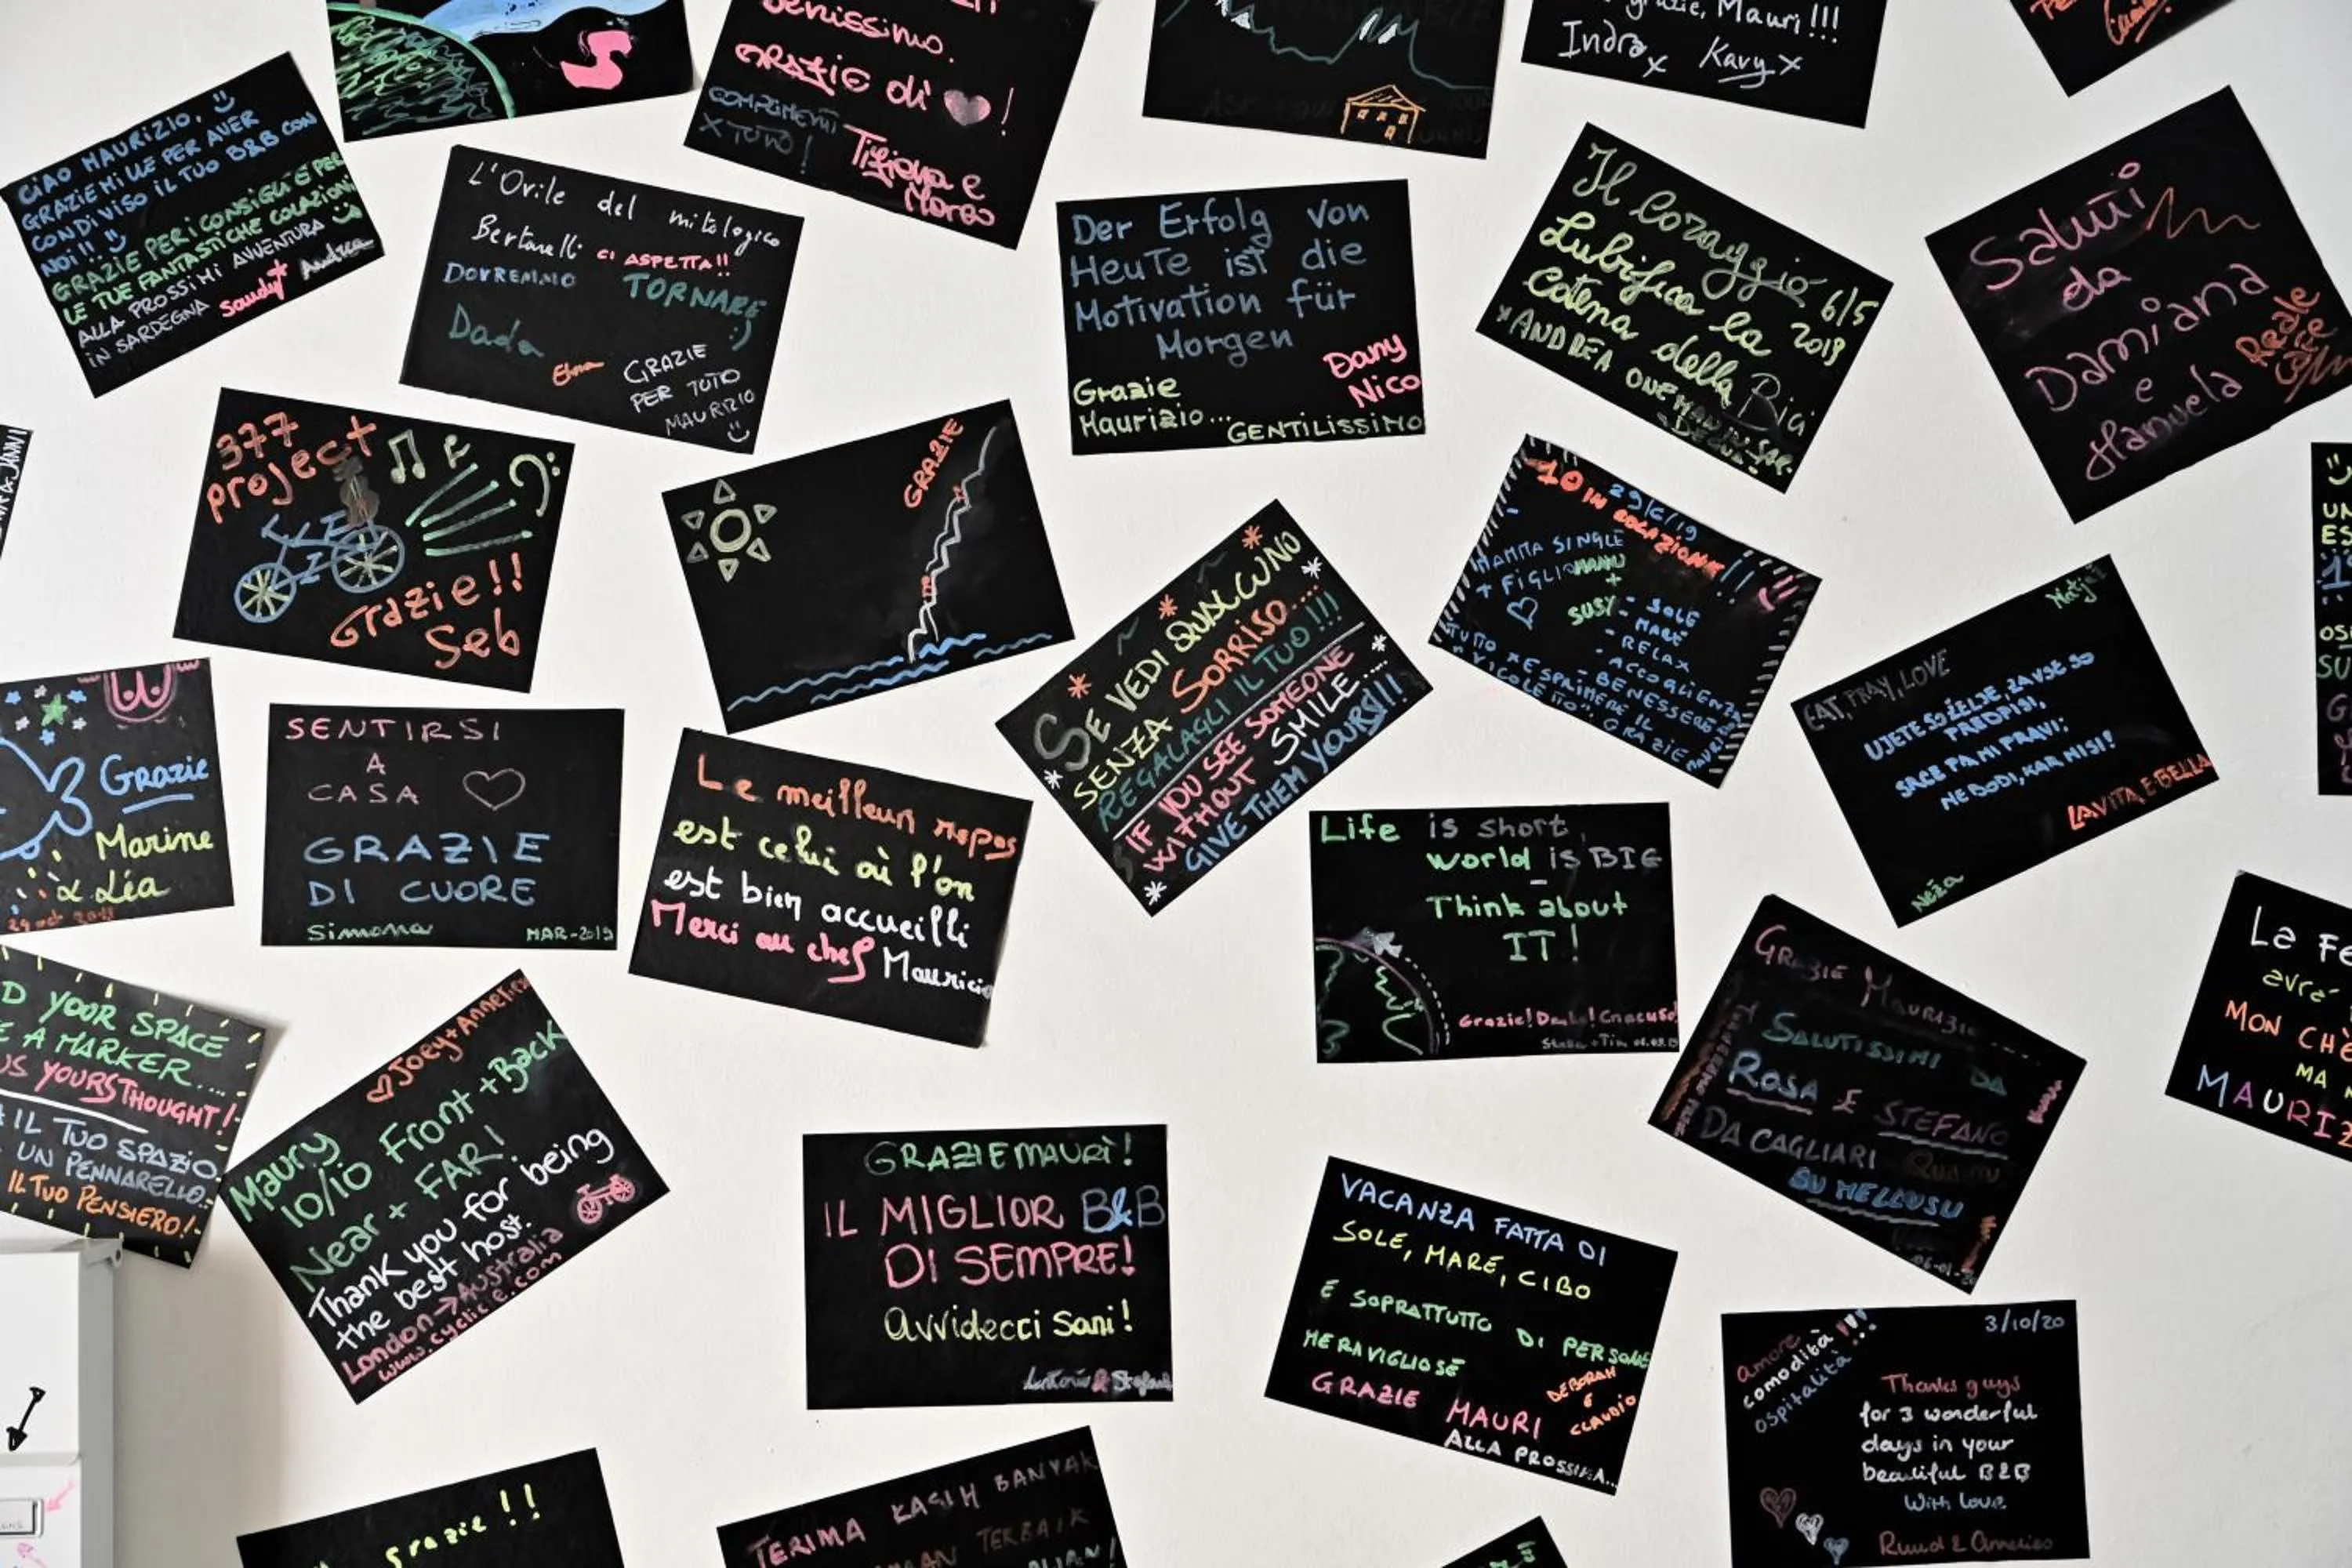 CIAO MAURIZIO,
GRAZIE MILLE PER AVER
CONDIVISO IL TUO B&B CON
NOI!!
GRAZIE PER I CONSIGLI E PER
LE TUE FANTASTICHE COLAZIONI
ALLA PROSSIMA AVVENTURA
IN SARDEGNA Sandy Andrea
benissimo.
GRAZIE di !
COMPLIMENTI
X TUTTO!
Tiziana e
Marco
grazie, Mauri!!!
Indra x Kavy x
L'Ovile del mitologico
Bertarelli CI ASPETTA!!
DOVREMMO TORNARE :)
Dada
Elena
GRAZIE
PER TUTTO
MAURIZIO
Der Erfolg von
Heute ist die
Motivation für
Morgen
Dany
Nico
Grazie
Maurizio... GENTILISSIMO
Il Coraggio 6/5
Lubrifica la 2019
Catena della Bici
x ANDREA ONE MAN
Saluti
da
Damiana
e
Manuela
Reale
377
project
Grazie!!
Seb
GRAZIE
SE VEDI QUALCUNO
SENZA SORRISO....
REGALAGLI IL TUO!!!
IF YOU SEE SOMEONE
WITHOUT SMILE....
GIVE THEM YOURS!!!
29/6/19
10 IN COLAZIONE!!
MAMMA SINGLE
+ FIGLIO MANU
+
SUSY = - SOLE
- MARE
- RELAX
- ACCOGLIENZA
- BENESSERE
TUTTO X ESPRIMERE IL
"VICOLETTO". GRAZIE MAURI
Matjaž
EAT, PRAY, LOVE
UJETE SO ŽELJE, ZA VSE SO
PREDPISI,
SRCE PA MI PRAVI:
NE BODI, KAR NISI!
LA VITA E BELLA
Neža
Grazie
Marine
& Léa
SENTIRSI
A
CASA
GRAZIE
DI CUORE
Simona MAR-2019
Le meilleur repos
est celui où l'on
est bien accueilli
Merci au chef Mauricio
Life is short,
world is BIG
Think about
IT!
GRAZIE MAURIZIO
SALUTISSIMI DA
ROSA E STEFANO
DA CAGLIARI
SU MELLUSU
La Fe
avré
MON CHE
MA
MAURIZ
D YOUR SPACE
E A MARKER....
US YOURS THOUGHT!
IL TUO SPAZIO
UN PENNARELLO..
IL TUO PENSIERO!
Joey + Annelies
Maury
10/10 Front + Back
Near + FAR!
Thank you for being
the best host.
London → Australia
www.cyclic-e.com
GRAZIE MAURÌ!
IL MIGLIOR B&B
DI SEMPRE!
Avvidecci Sani!
VACANZA FATTA DI
SOLE, MARE, CIBO
E SOPRATTUTTO DI PERSONE
MERAVIGLIOSE
GRAZIE MAURI
DEBORAH
E
CLAUDIO
ALLA PROSSIMA...
3/10/20
amore
comodità!!!
ospitalità
Thanks guys
for 3 wonderful
days in your
beautiful B&B
With love
Ruud & Annelies
grazie!!
TERIMA KASIH BANYAK
TERBAIK